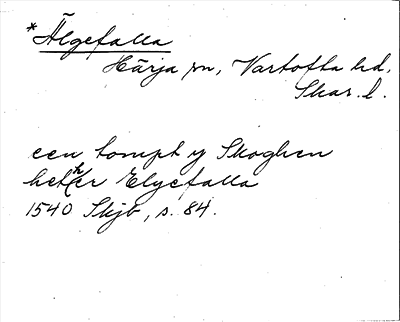 *Älgefalla
Härja sn, Vartofta hd,
Skar. l.
een tompt y Skoghen
hether Elgefalla
1540 Skjb, s. 84.